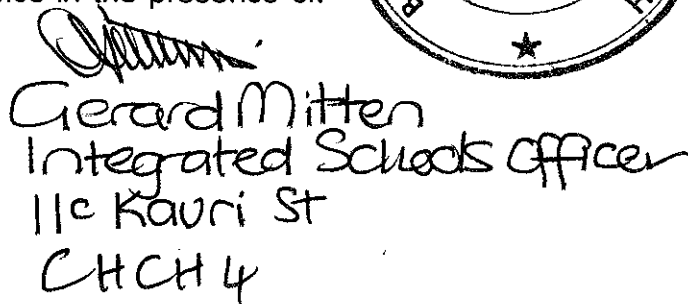 in the presence of:
Gerard Mitten
Integrated Schools Officer
11c Kauri St
CHCH 4
B H